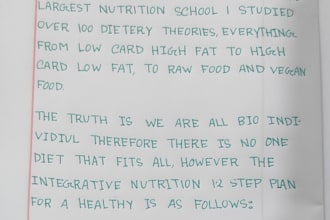 LARGEST NUTRITION SCHOOL I STUDIED
OVER 100 DIETERY THEORIES, EVERYTHING
FROM LOW CARD HIGH FAT TO HIGH
CARD LOW FAT, TO RAW FOOD AND VEGEAN
FOOD.
THE TRUTH IS WE ARE ALL BIO INDI-
VIDIUL THEREFORE THERE IS NO ONE
DIET THAT FITS ALL, HOWEVER THE
INTEGRATIVE NUTRITION 12 STEP PLAN
FOR A HEALTHY IS AS FOLLOWS: